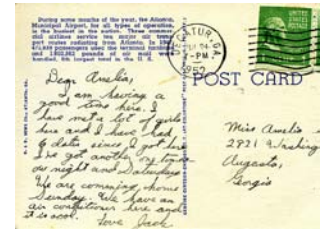 During some months of the year, the Atlanta
Municipal Airport, for all types of operation,
is the busiest in the nation. Three commer-
cial airlines service ten major air trans-
port routes radiating from Atlanta. In 19
passengers used the terminal facilities
and pounds of air mail were
handled, 6th largest total in the U. S.
DECATUR, GA.
-PM
1952
POST CARD
Dear Amelia,
I am having a
good time here. I
have met a lot of girls
here and I have had
6 dates since I got here
I've got another on
night and Saturday
We are coming home
Sunday. We have an
air conditioner here and
it is cool.
Love Jack
Miss Amelia
2921
Augusta,
Georgia